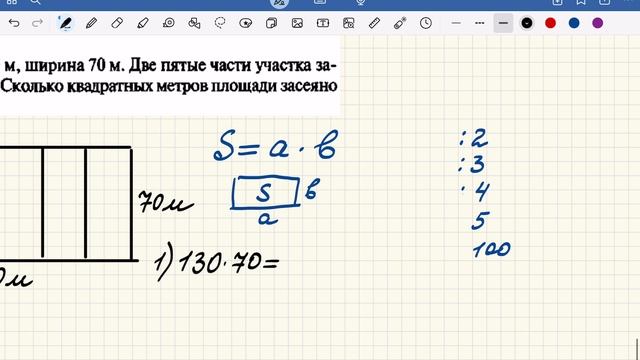 м, ширина 70 м. Две пятые части участка за-
Сколько квадратных метров площади засеяно
S = a · b
S b
a
70м
0м
1) 130·70=
:2
:3
·4
5
100